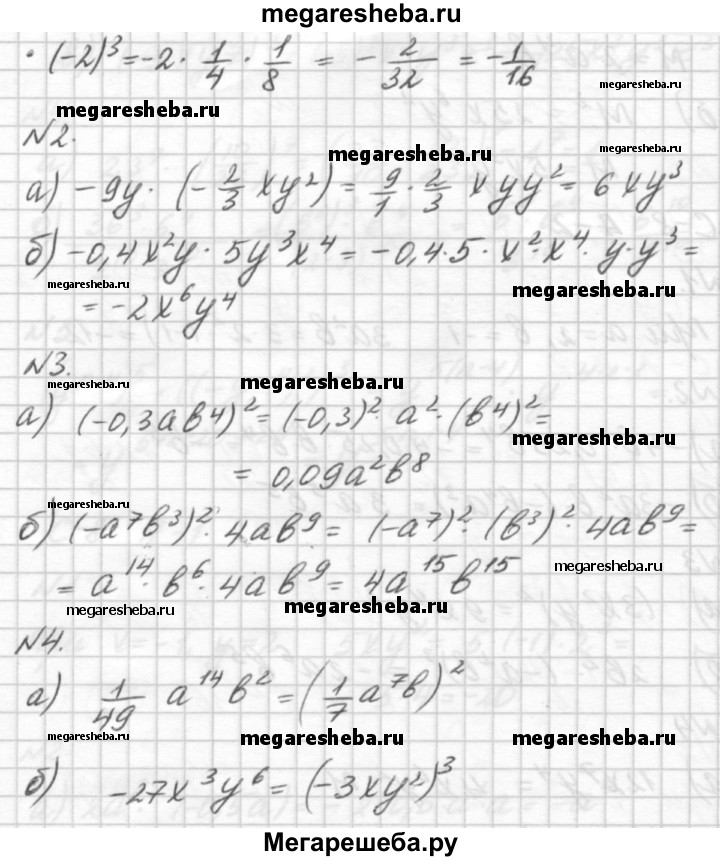 megaresheba.ru
· (-2)³ = -2 · 1/4 · 1/8 = - 2/32 = - 1/16
megaresheba.ru
megaresheba.ru
№2.
megaresheba.ru
megaresheba.ru
а) -9y · (- 2/3 xy²) = 9/1 · 2/3 xyy² = 6xy³
б) -0,4x²y · 5y³x⁴ = -0,4·5·x²·x⁴·y·y³ =
megaresheba.ru
megaresheba.ru
= -2x⁶y⁴
№3.
megaresheba.ru
megaresheba.ru
а) (-0,3ab⁴)² = (-0,3)²·a²·(b⁴)² =
megaresheba.ru
= 0,09a²b⁸
megaresheba.ru
б) (-a⁷b³)²·4ab⁹ = (-a⁷)²·(b³)²·4ab⁹ =
= a¹⁴·b⁶·4ab⁹ = 4a¹⁵b¹⁵
megaresheba.ru
megaresheba.ru
megaresheba.ru
№4.
а) 1/49 a¹⁴b² = (1/7 a⁷b)²
megaresheba.ru
megaresheba.ru
megaresheba.ru
б) -27x³y⁶ = (-3xy²)³
Мегарешеба.ру